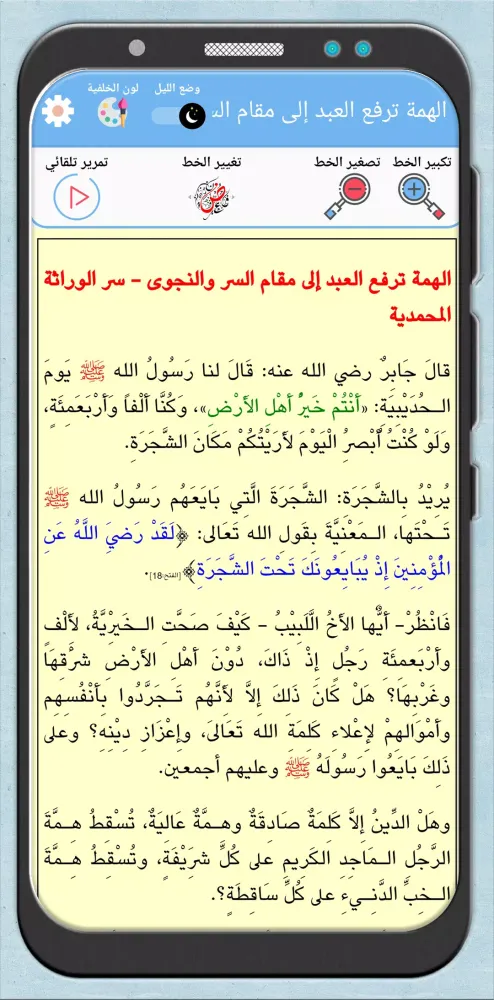 وضع الليل
لون الخلفية
الهمة ترفع العبد إلى مقام الس
تكبير الخط
تصغير الخط
تغيير الخط
تمرير تلقائي
الهمة ترفع العبد إلى مقام السر والنجوى – سر الوراثة
المحمدية
قالَ جَابِرٌ رضي الله عنه: قَالَ لنا رَسُولُ الله ﷺ يَومَ
الـحُدَيْبِيَةِ: «أَنْتُمْ خَيرُ أَهْلِ الأَرْضِ»، وَكُنَّا أَلْفاً وَأَرْبَعَمِئَةٍ،
وَلَوْ كُنْتُ أُبْصِرُ الْيَوْمَ لأَرَيْتُكُمْ مَكَانَ الشَّجَرَةِ.
يُرِيْدُ بِالشَّجَرَةِ: الشَّجَرَةَ الَّتِي بَايَعَهُم رَسُولُ الله ﷺ
تَـحْتَها، الـمَعْنِيَّةَ بِقَولِ الله تَعَالى: ﴿لَقَدْ رَضِيَ اللَّهُ عَنِ
الْمُؤْمِنِينَ إِذْ يُبَايِعُونَكَ تَحْتَ الشَّجَرَةِ﴾ [الفتح:18].
فَانْظُرْ– أَيُّها الأَخُ اللَّبِيْبُ – كَيْفَ صَحَّتِ الـخَيْرِيَّةُ، لأَلْفِ
وأَرْبَعمئَةِ رَجُلٍ إِذْ ذَاكَ، دُوْنَ أَهْلِ الأَرْضِ شَرْقِهَا
وغَرْبِهَا؟ هَلْ كَانَ ذَلِكَ إِلاَّ لأَنَّهُم تَـجَرَّدُوا بِأَنْفُسِهِم
وأَمْوَالِهِمْ لإِعْلاء كَلمَة الله تَعَالَى، وإِعْزَازِ دِيْنِهِ؟ وعَلى
ذَلِكَ بَايَعُوا رَسُولَهُ ﷺ وعليهم أجمعين.
وهَلْ الدِّينُ إِلاَّ كَلمَةٌ صَادقَةٌ وهـمَّةٌ عَاليَةٌ، تُسْقِطُ هـمَّةَ
الرَّجُلِ الـمَاجِدِ الكَريمِ على كُلِّ شَرِيْفَةٍ، وتُسْقِطُ هِـمَّةَ
الـخبِّ الدَّنـيءِ على كُلِّ سَاقِطَةٍ؟.